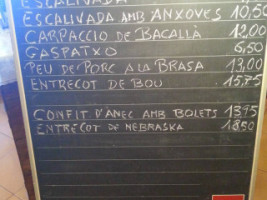 ESCALIVADA
ESCALIVADA AMB ANXOVES 10,50
CARPACCIO DE BACALLÀ 12,00
GASPATXO 6,50
PEU DE PORC A LA BRASA 13,00
ENTRECOT DE BOU 15,75
CONFIT D'ANEC AMB BOLETS 13,95
ENTRECOT DE NEBRASKA 18,50